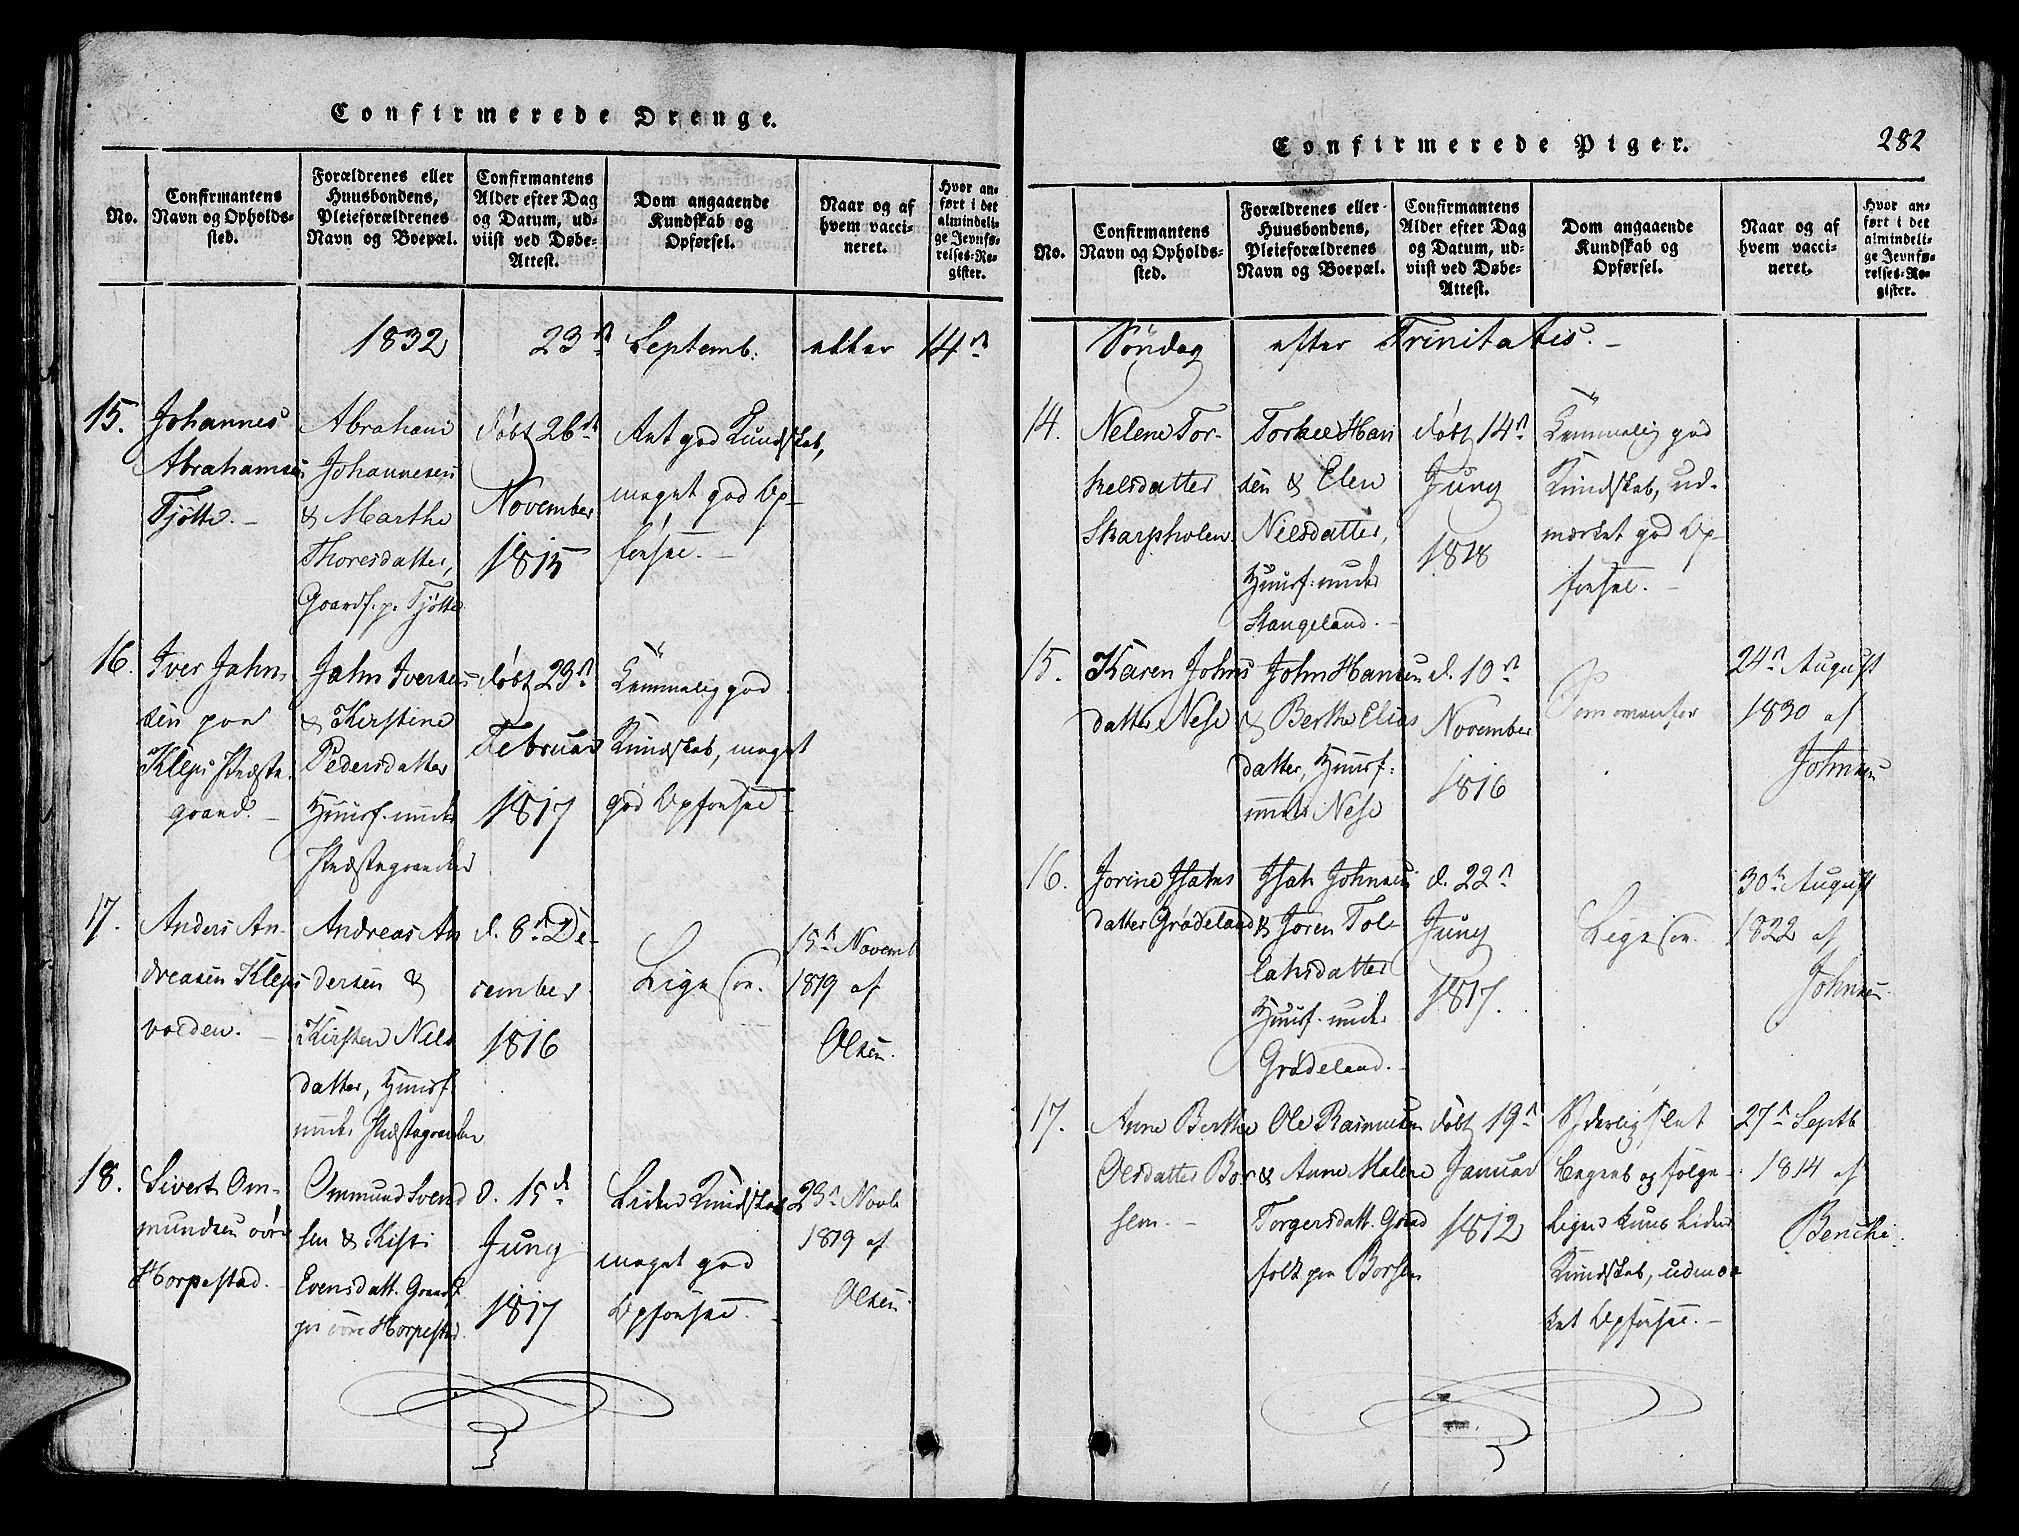 Confirmerede Drenge.
No.
Confirmantens
Navn og Opholds-
sted.
Forældrenes eller
Huusbondens,
Pleieforældrenes
Navn og Boepæl.
Confirmantens
Alder efter Dag
og Datum, ud-
viist ved Døbe-
Attest.
Dom angaaende
Kundskab og
Opførsel.
Naar og af
hvem vacci-
neret.
Hvor an-
ført i det
almindeli-
ge Jevnfø-
relses-Re-
gister.
1832 23de Septemb. 14de
15.
Johannes
Abrahamsen
Tjøtte. -
Abraham
Johannesen
& Marthe
Thoresdatter,
Gaardf. p. Tjøtte
døbt 26de
November
1815
Ant god Kundskab,
meget god Op-
førsel. -
16.
Iver Jahn-
sen paa
Kleps Præste-
gaard. -
Jahn Iversen
& Kirstine
Pedersdatter
Huusf. under
Præstegaarden
døbt 23de
Februar
1817
Temmelig god
Kundskab, meget
god Opførsel -
17.
Anders An-
dreasen Kleps
volden. -
Andreas An
dersen &
Kirsten Niels
datter, Huusf.
under Præstegaarden
d. 8de De-
cember
1816
Ligesaa.
15de Novemb
1819 af
Olsen.
18.
Sivert Om-
mundsen øvre
Horpestad. -
Ommund Svend
sen & Kisti
Evensdatt. Gaardf.
paa øvre Horpestad.
d. 15de
Juny
1817
Liden Kundskab
meget god
Opførsel -
23de Novb
1819 af
Olsen.
Confirmerede Piger.
282
No.
Confirmantens
Navn og Opholds-
sted.
Forældrenes eller
Huusbondens,
Pleieforældrenes
Navn og Boepæl.
Confirmantens
Alder efter Dag
og Datum, ud-
viist ved Døbe-
Attest.
Dom angaaende
Kundskab og
Opførsel.
Naar og af
hvem vacci-
neret.
Hvor an-
ført i det
almindeli-
ge Jevnfø-
relses-Re-
gister.
Søndag efter Trinitatis. -
14.
Nelene Tor-
kelsdatter
Skarpholen
Torkel Han
sen & Elen
Nielsdatter,
Huusf. under
Stangeland. -
døbt 14de
Juny
1818
Temmelig god
Kundskab, ud-
mærket god Op-
førsel. -
15.
Karen Johns
datter Nese
John Hansen
& Berthe Elias
datter, Huusf.
under Nese
d. 10de
November
1816
Som ovenfor
24de August
1830 af
Johnsen
16.
Jorine Isaks
datter Grødeland
Isak Johnsen
& Joren Tol-
laksdatter
Huusf. under
Grødeland. -
d. 22de
Juny
1817.
Ligesaa.
30te August
1822 af
Johnsen.
17.
Anne Berthe
Olsdatter Bor
sem. -
Ole Rasmusen
& Anne Malene
Torgersdatt. Gaard
folk paa Borsem
døbt 19de
Januar
1812
Yderlig slet
Begreb og følge-
ligen kuns liden
Kundskab, udmær
ket Opførsel. -
27de Septb
1814 af
Bencke.